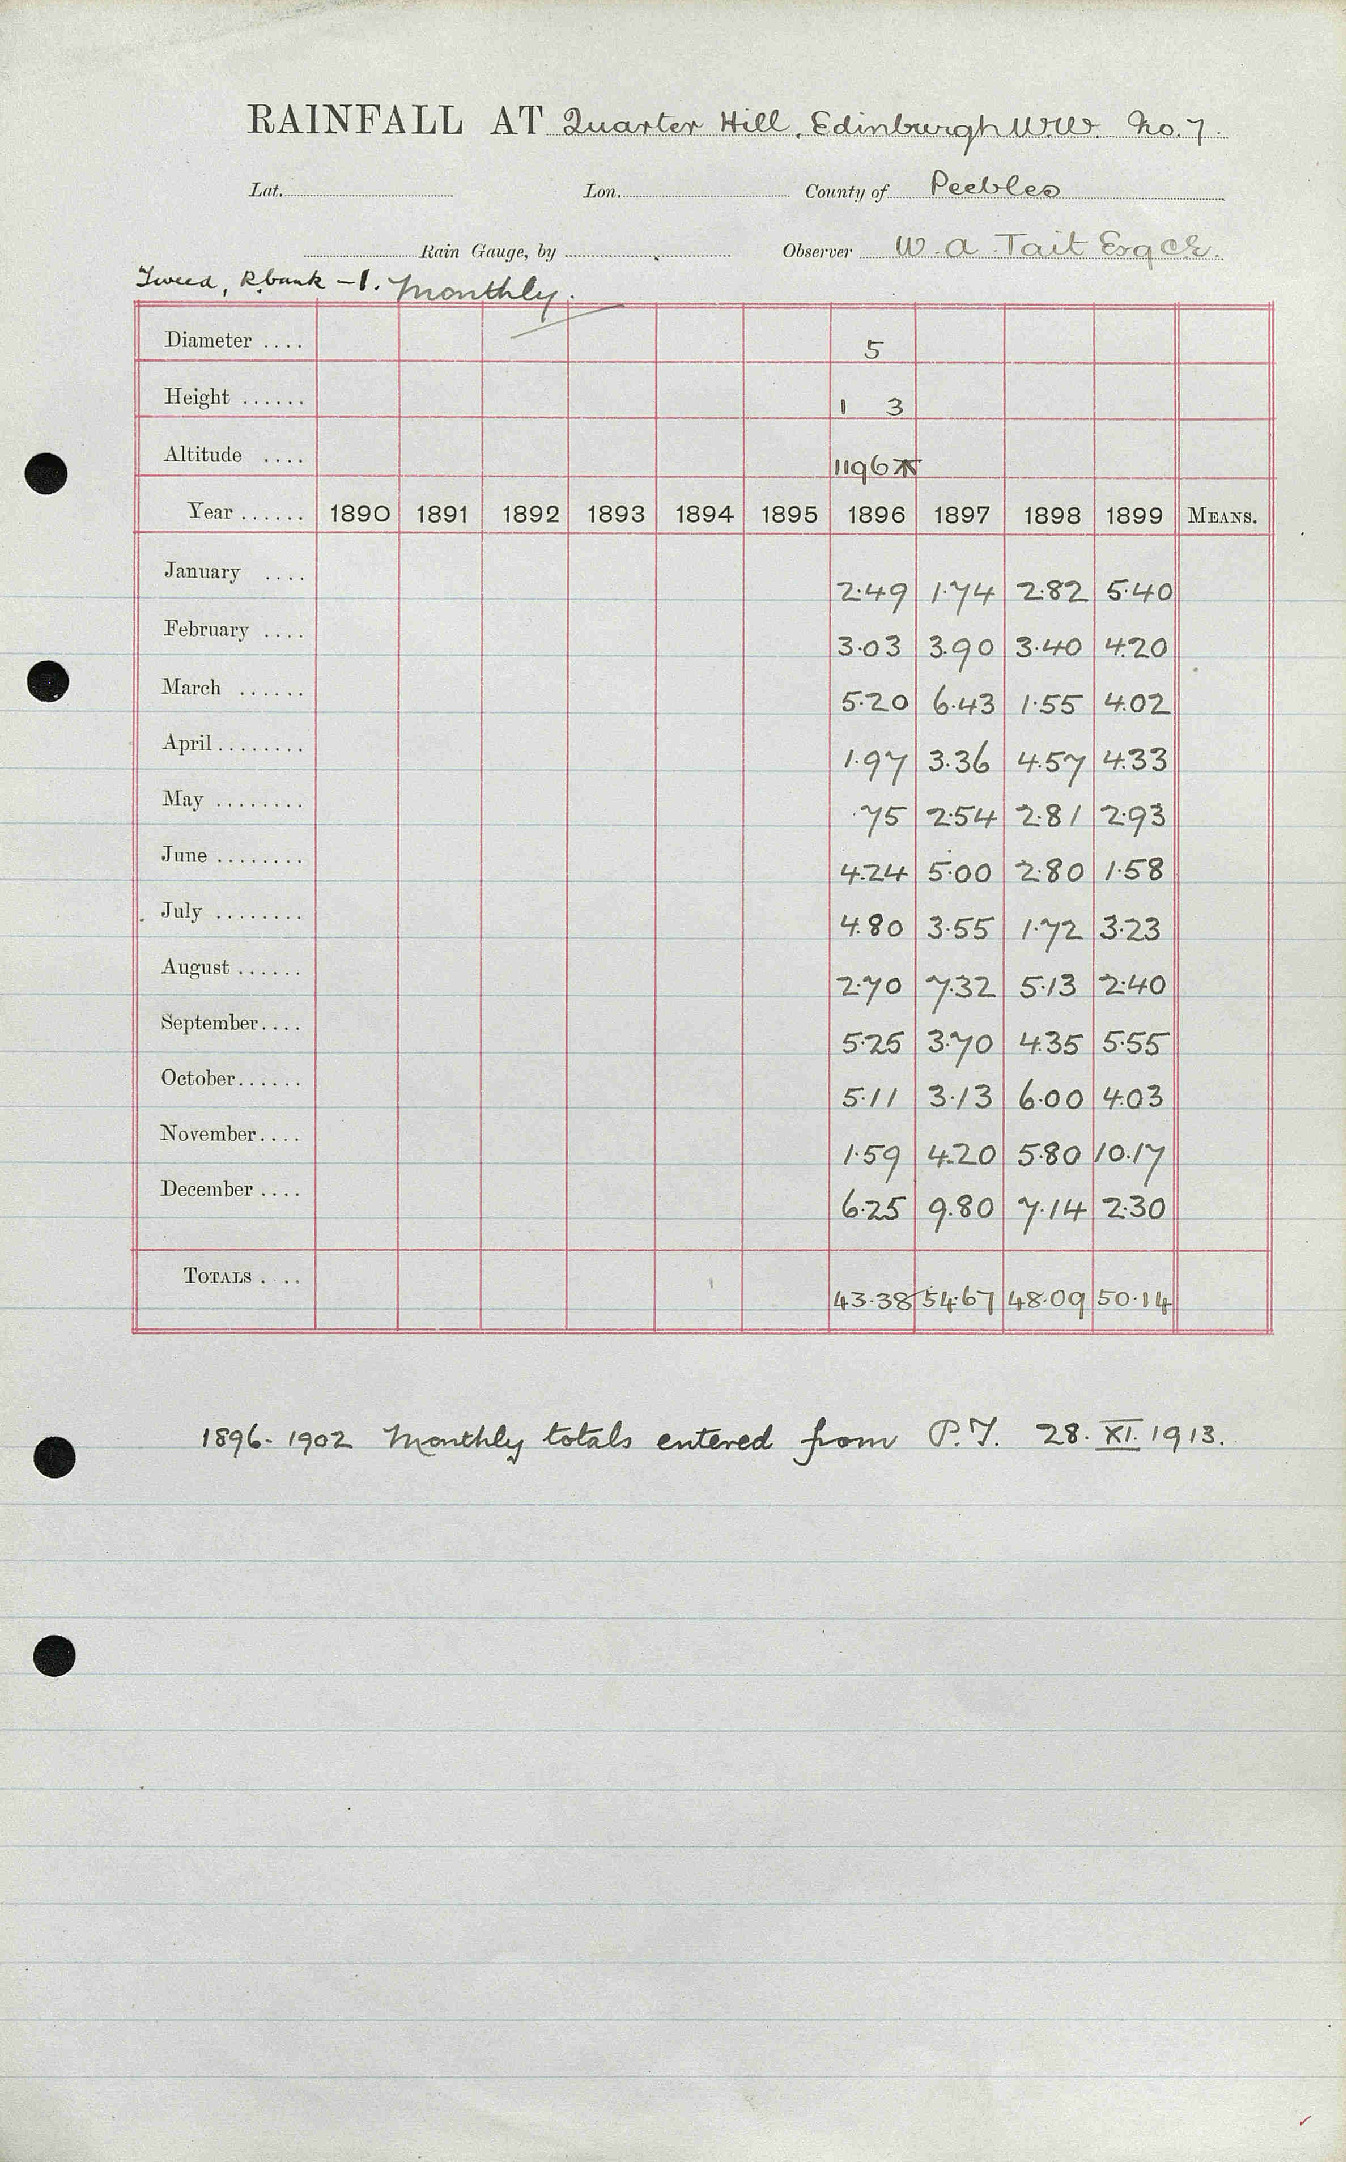 RAINFALL AT Quarter Hill, Edinburgh W.W. No. 7.
Lat. Lon. County of Peebles
Rain Gauge, by Observer W. A. Tait Esq C.E.
Tweed, R. bank – 1. Monthly.
Diameter .... 5
Height ...... 1 3
Altitude .... 1196
Year ...... 1890 1891 1892 1893 1894 1895 1896 1897 1898 1899 MEANS.
January .... 2.49 1.74 2.82 5.40
February .... 3.03 3.90 3.40 4.20
March ...... 5.20 6.43 1.55 4.02
April ........ 1.97 3.36 4.57 4.33
May ........ .75 2.54 2.81 2.93
June ........ 4.24 5.00 2.80 1.58
July ........ 4.80 3.55 1.72 3.23
August ...... 2.70 7.32 5.13 2.40
September.... 5.25 3.70 4.35 5.55
October...... 5.11 3.13 6.00 4.03
November.... 1.59 4.20 5.80 10.17
December .... 6.25 9.80 7.14 2.30
TOTALS .... 43.38 54.67 48.09 50.14
1896-1902 Monthly totals entered from P.T. 28. XI. 1913.